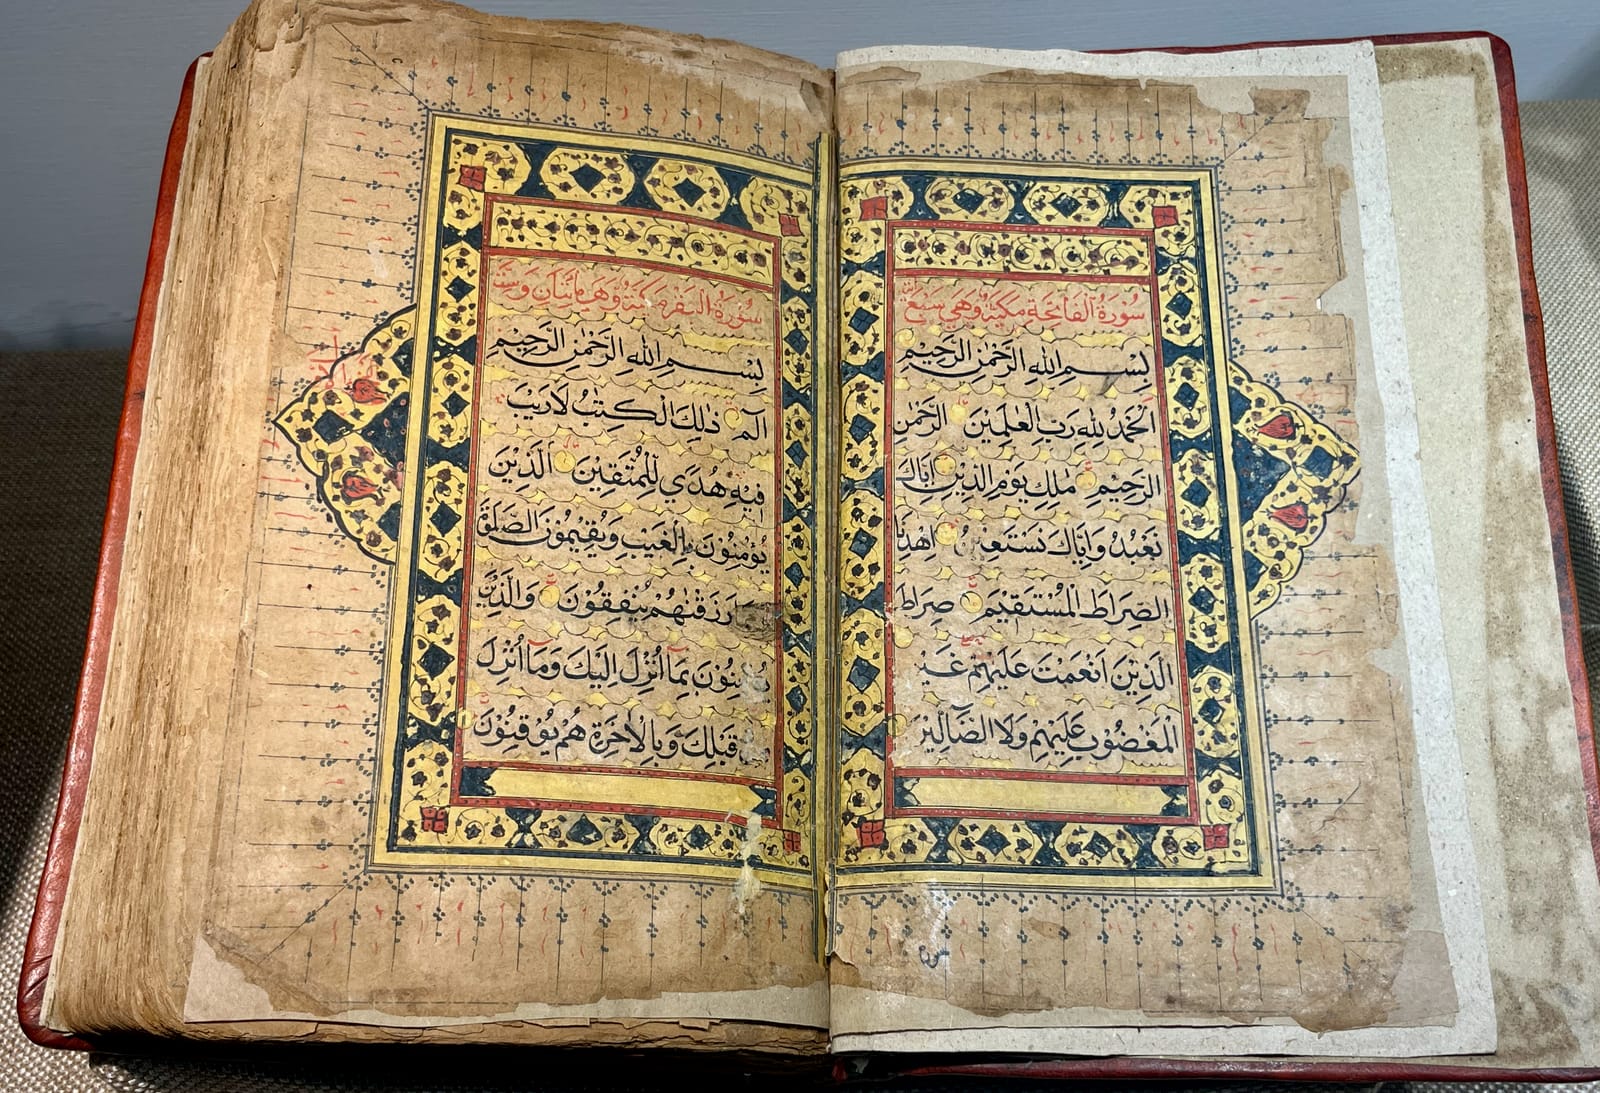 سُورَةُ الْفَاتِحَةِ مَكِّيَّةٌ وَهِيَ سَبْعُ
بِسْمِ اللهِ الرَّحْمٰنِ الرَّحِيْمِ
اَلْحَمْدُ لِلّٰهِ رَبِّ الْعٰلَمِيْنَ الرَّحْمٰنِ
الرَّحِيْمِ مٰلِكِ يَوْمِ الدِّيْنِ اِيَّاكَ
نَعْبُدُ وَاِيَّاكَ نَسْتَعِيْنُ اِهْدِنَا
الصِّرَاطَ الْمُسْتَقِيْمَ صِرَاطَ
الَّذِيْنَ اَنْعَمْتَ عَلَيْهِمْ غَيْرِ
الْمَغْضُوْبِ عَلَيْهِمْ وَلَا الضَّآلِّيْنَ
سُورَةُ الْبَقَرِ مَكِّيَّةٌ وَهِيَ مِائَتَانِ وَسِتَّ
بِسْمِ اللهِ الرَّحْمٰنِ الرَّحِيْمِ
الٓمٓ ذٰلِكَ الْكِتٰبُ لَا رَيْبَ
فِيْهِ هُدًى لِّلْمُتَّقِيْنَ الَّذِيْنَ
يُؤْمِنُوْنَ بِالْغَيْبِ وَيُقِيْمُوْنَ الصَّلٰوةَ
رَزَقْنٰهُمْ يُنْفِقُوْنَ وَالَّذِيْنَ
يُؤْمِنُوْنَ بِمَآ اُنْزِلَ اِلَيْكَ وَمَآ اُنْزِلَ
قَبْلِكَ وَبِالْاٰخِرَةِ هُمْ يُوْقِنُوْنَ